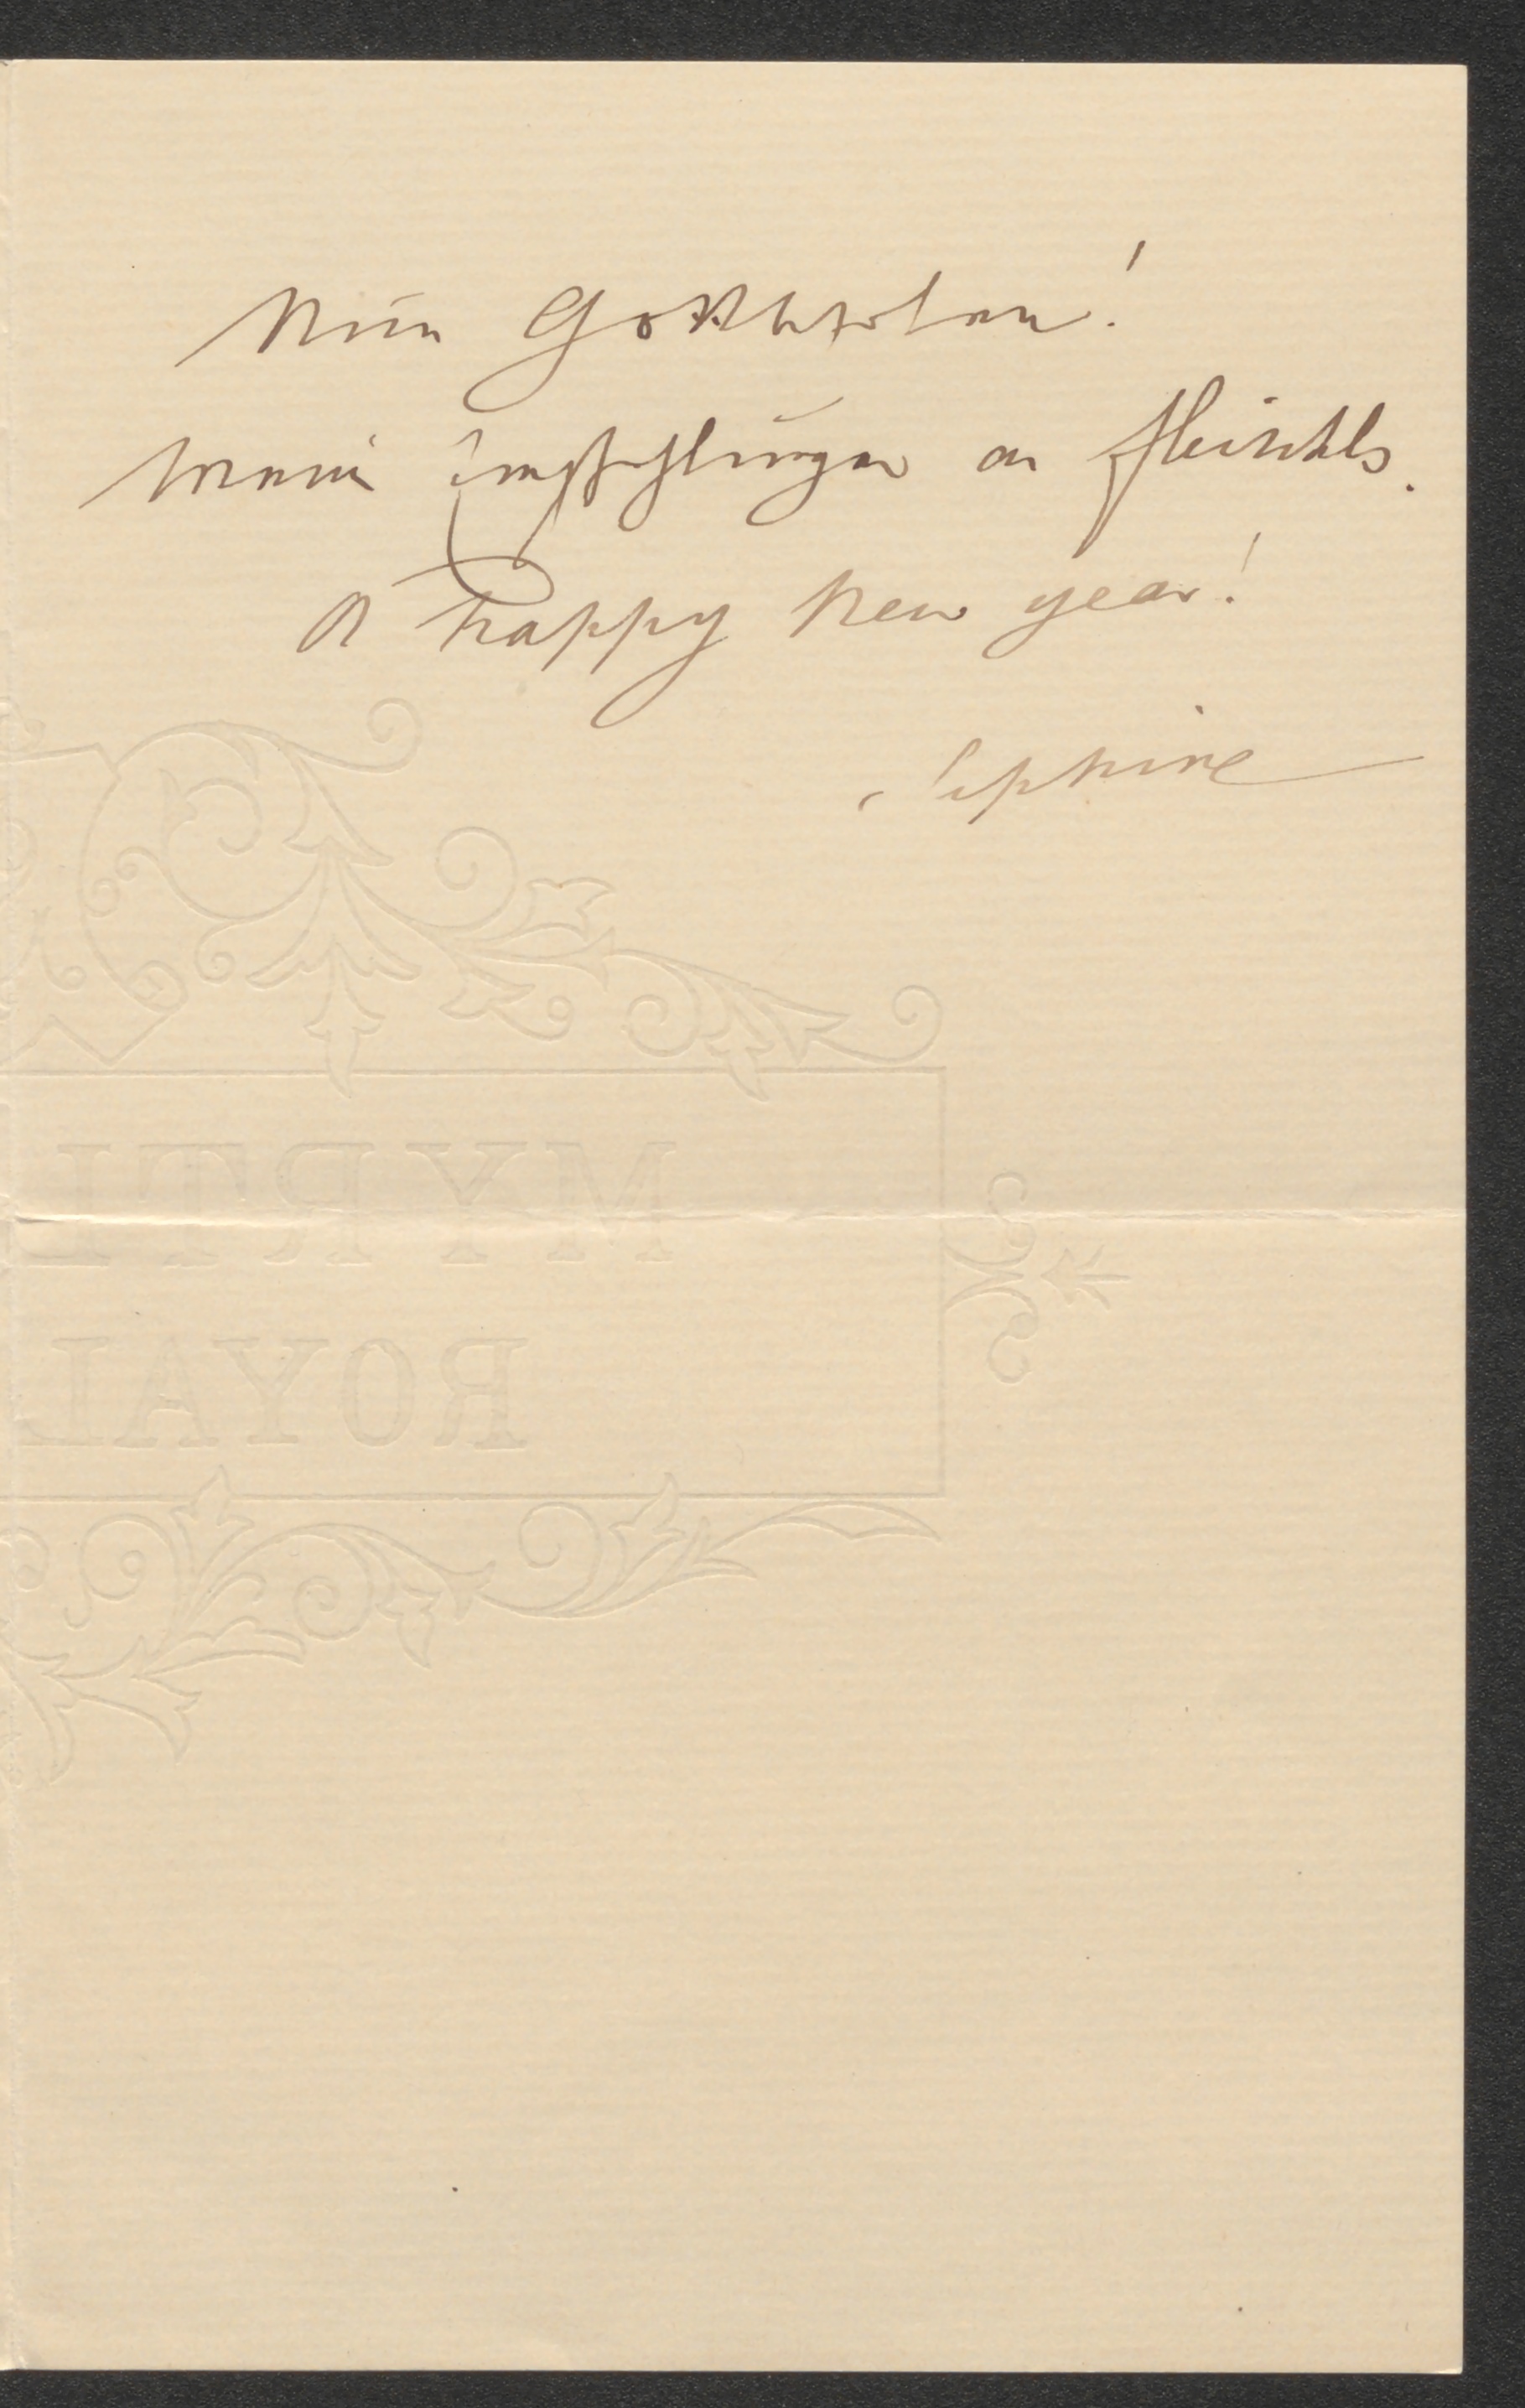 Nun Gottbefohlen!
Meine Empfehlungen an Fleischls.
A happy New year!
Sephine
MYRTL
ROYAL